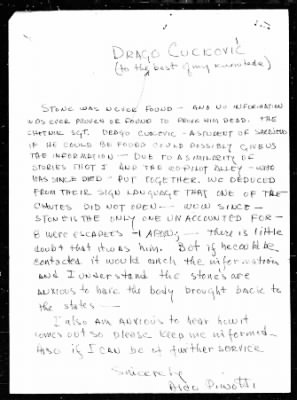 DRAGO CUCKOVIĆ
(to the best of my knowledge)
STONE WAS NEVER FOUND - AND NO INFORMATION
WAS EVER PROVEN OR FOUND TO PROVE HIM DEAD. THE
CHETNIK SGT. DRAGO CUKOVIC - A STUDENT OF SARAJEVO
IF HE COULD BE FOUND COULD POSSIBLY GIVE US
THE INFORMATION - DUE TO A SIMILARITY OF
STORIES THAT I AND THE COPILOT ALLEY - WHO
HAS SINCE DIED - PUT TOGETHER. WE DEDUCED
FROM THEIR SIGN LANGUAGE THAT ONE OF THE
CHUTES DID NOT OPEN - NOW SINCE -
STONE IS THE ONLY ONE UNACCOUNTED FOR -
8 were ESCAPEES - 1 - There is little
doubt that it was him. But if he could be
contacted it would enrich the information
AND I understand the stone's are
ANXIOUS to have the body brought back to
the states -
I also am anxious to hear how it
comes out so please keep me informed -
Also if I can be of further service
Sincerely
Aldo